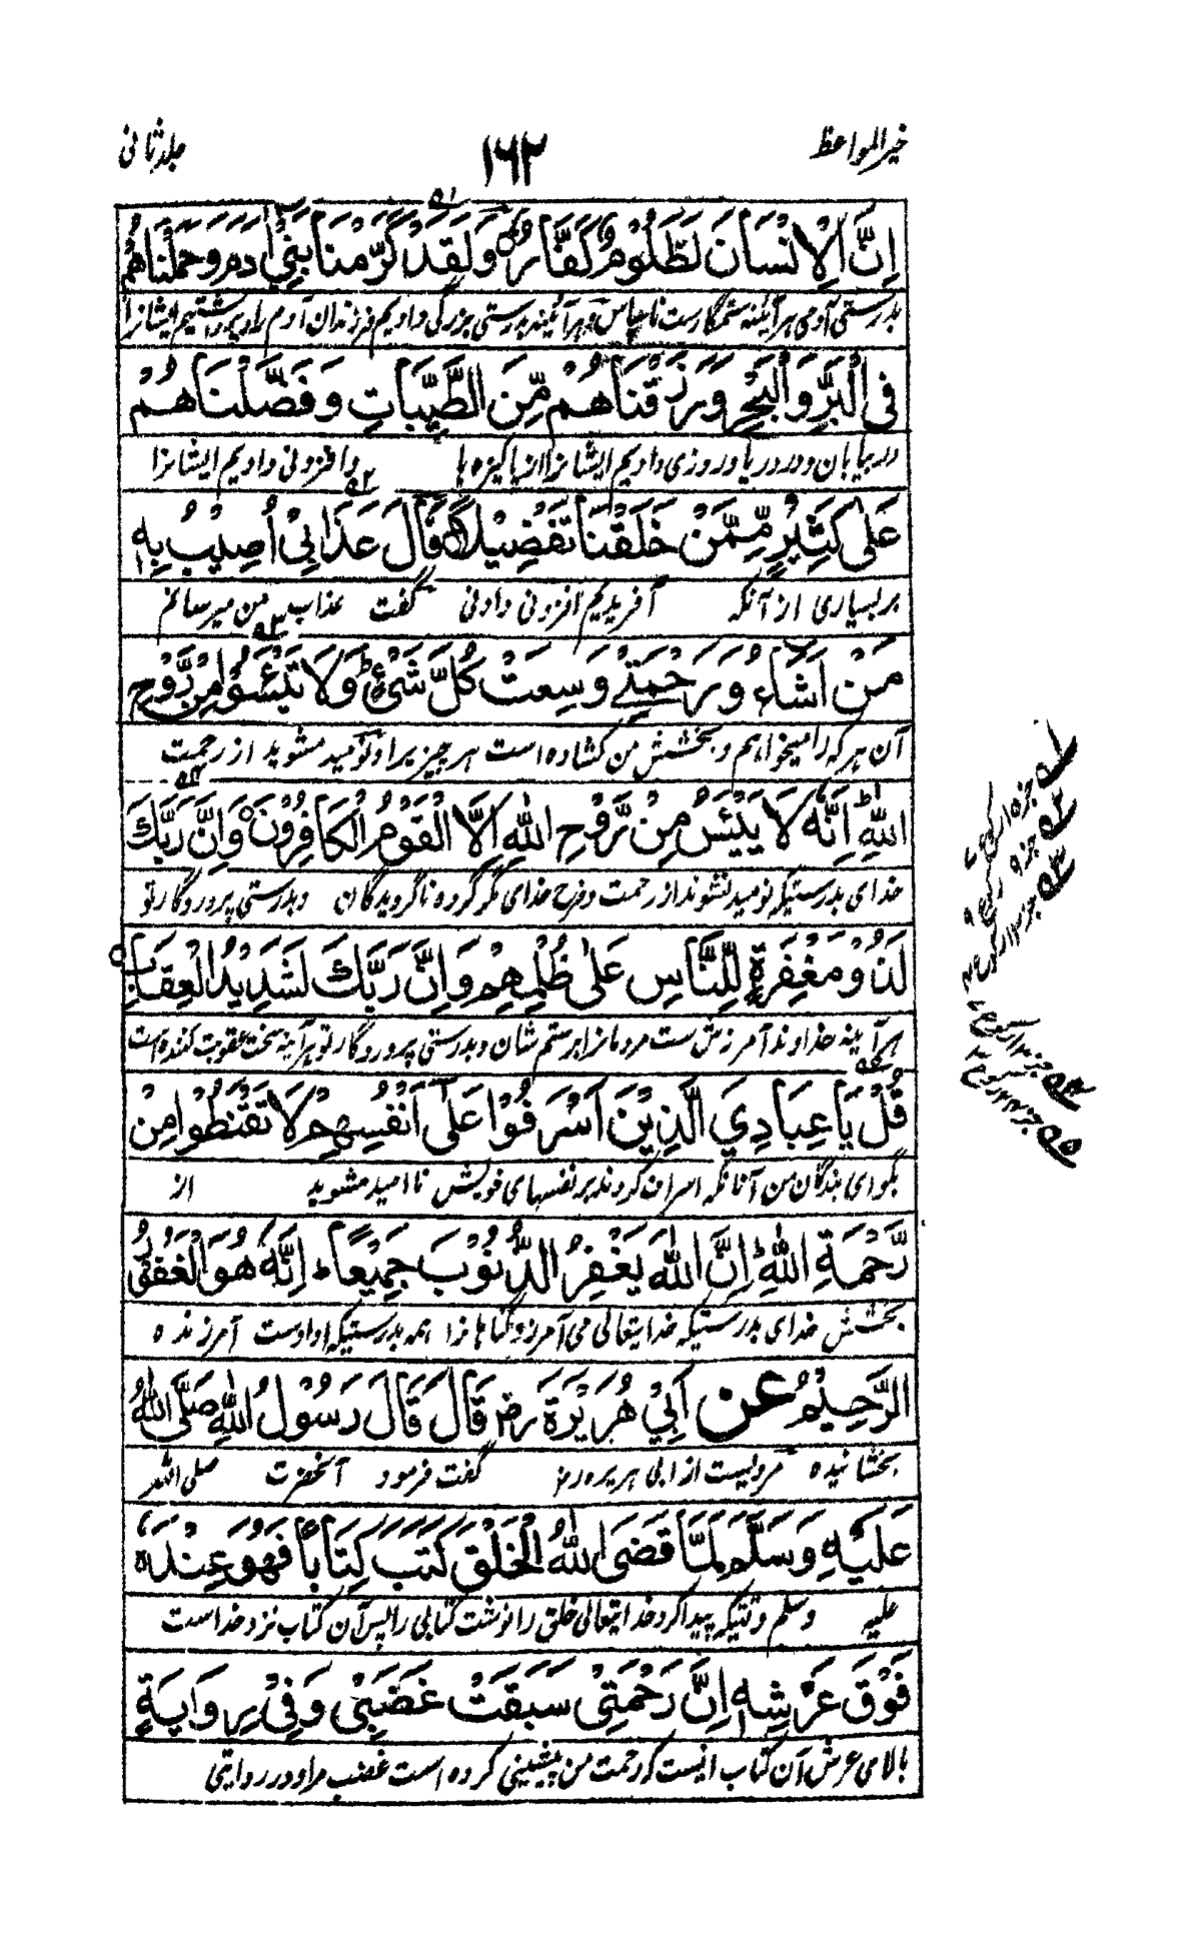 خیر المواعظ
۱۶۲
جلد ثانی
۵۱
اِنَّ الْاِنْسَانَ لَظَلُوْمٌ كَفَّارٌ وَلَقَدْ كَرَّمْنَا بَنِيْ اٰدَمَ وَحَمَلْنَاهُمْ
بدرستی آدمی هرآئینه ستمگارست ناسپاس و هرآئینه بدرستی بزرگی دادیم فرزندان آدم را و برداشتیم ایشانرا
فِى الْبَرِّ وَالْبَحْرِ وَرَزَقْنَاهُمْ مِّنَ الطَّيِّبَاتِ وَفَضَّلْنَاهُمْ
در بیابان و در دریا و روزی دادیم ایشانرا از پاکیزه ها و افزونی دادیم ایشانرا
۵۲
عَلٰى كَثِيْرٍ مِّمَّنْ خَلَقْنَا تَفْضِيْلًا قَالَ عَذَابِيْ اُصِيْبُ بِهٖ
بر بسیاری از آنکه آفریدیم افزونی دادنی گفت عذاب من میرسانم
۵۳
مَنْ اَشَاءُ وَرَحْمَتِيْ وَسِعَتْ كُلَّ شَيْءٍ ط وَلَا تَيْئَسُوْا مِنْ رَّوْحِ
آن هر که را میخواهم و بخشش من کشاده است هر چیز را و نومید مشوید از رحمت
۵۴
اللّٰهِ ط اِنَّهٗ لَا يَيْئَسُ مِنْ رَّوْحِ اللّٰهِ اِلَّا الْقَوْمُ الْكَافِرُوْنَ ○ وَاِنَّ رَبَّكَ
خدای بدرستیکه نومید نشوند از رحمت و فرح خدای مگر گروه ناگرویدگان و بدرستی پروردگار تو
لَذُوْ مَغْفِرَةٍ لِّلنَّاسِ عَلٰى ظُلْمِهِمْ وَاِنَّ رَبَّكَ لَشَدِيْدُ الْعِقَابِ ○
هر آینه خداوند آمرزش ست مردمانرا بر ستم شان و بدرستی پروردگار تو هر آینه سخت عقوبت کننده است
۵۵
قُلْ يَا عِبَادِيَ الَّذِيْنَ اَسْرَفُوْا عَلٰى اَنْفُسِهِمْ لَا تَقْنَطُوْا مِنْ
بگو ای بندگان من آنانکه اسراف کردند بر نفسهای خویش ناامید مشوید از
رَّحْمَةِ اللّٰهِ ط اِنَّ اللّٰهَ يَغْفِرُ الذُّنُوْبَ جَمِيْعًا ط اِنَّهٗ هُوَ الْغَفُوْرُ
بخشش خدای بدرستیکه خدایتعالی می آمرزد گناهانرا همه بدرستیکه او اوست آمرزنده
الرَّحِيْمُ عن اَبِيْ هُرَيْرَةَ رض قَالَ قَالَ رَسُوْلُ اللّٰهِ صَلَّى اللّٰهُ
بخشاینده مرویست از ابی هریره رض گفت فرمود آنحضرت صلی الله
عَلَيْهِ وَسَلَّمَ لَمَّا قَضَى اللّٰهُ الْخَلْقَ كَتَبَ كِتَابًا فَهُوَ عِنْدَهٗ
علیه وسلم وقتیکه پیدا کرد خدایتعالی خلق را نوشت کتابی را پس آن کتاب نزد خداست
فَوْقَ عَرْشِهٖ اِنَّ رَحْمَتِيْ سَبَقَتْ غَضَبِيْ وَفِيْ رِوَايَةٍ
بالای عرش آن کتاب اینست که رحمت من پیشینی کرده است غضب مرا و در روایتی
۵۱ جزء ۱۵ رکوع ۷
۵۲ جزء ۹ رکوع ۹
۵۳ جزء ۱۳ رکوع ۴
۵۴ جزء ۱۳ رکوع ۷
۵۵ جزء ۲۴ رکوع ۳